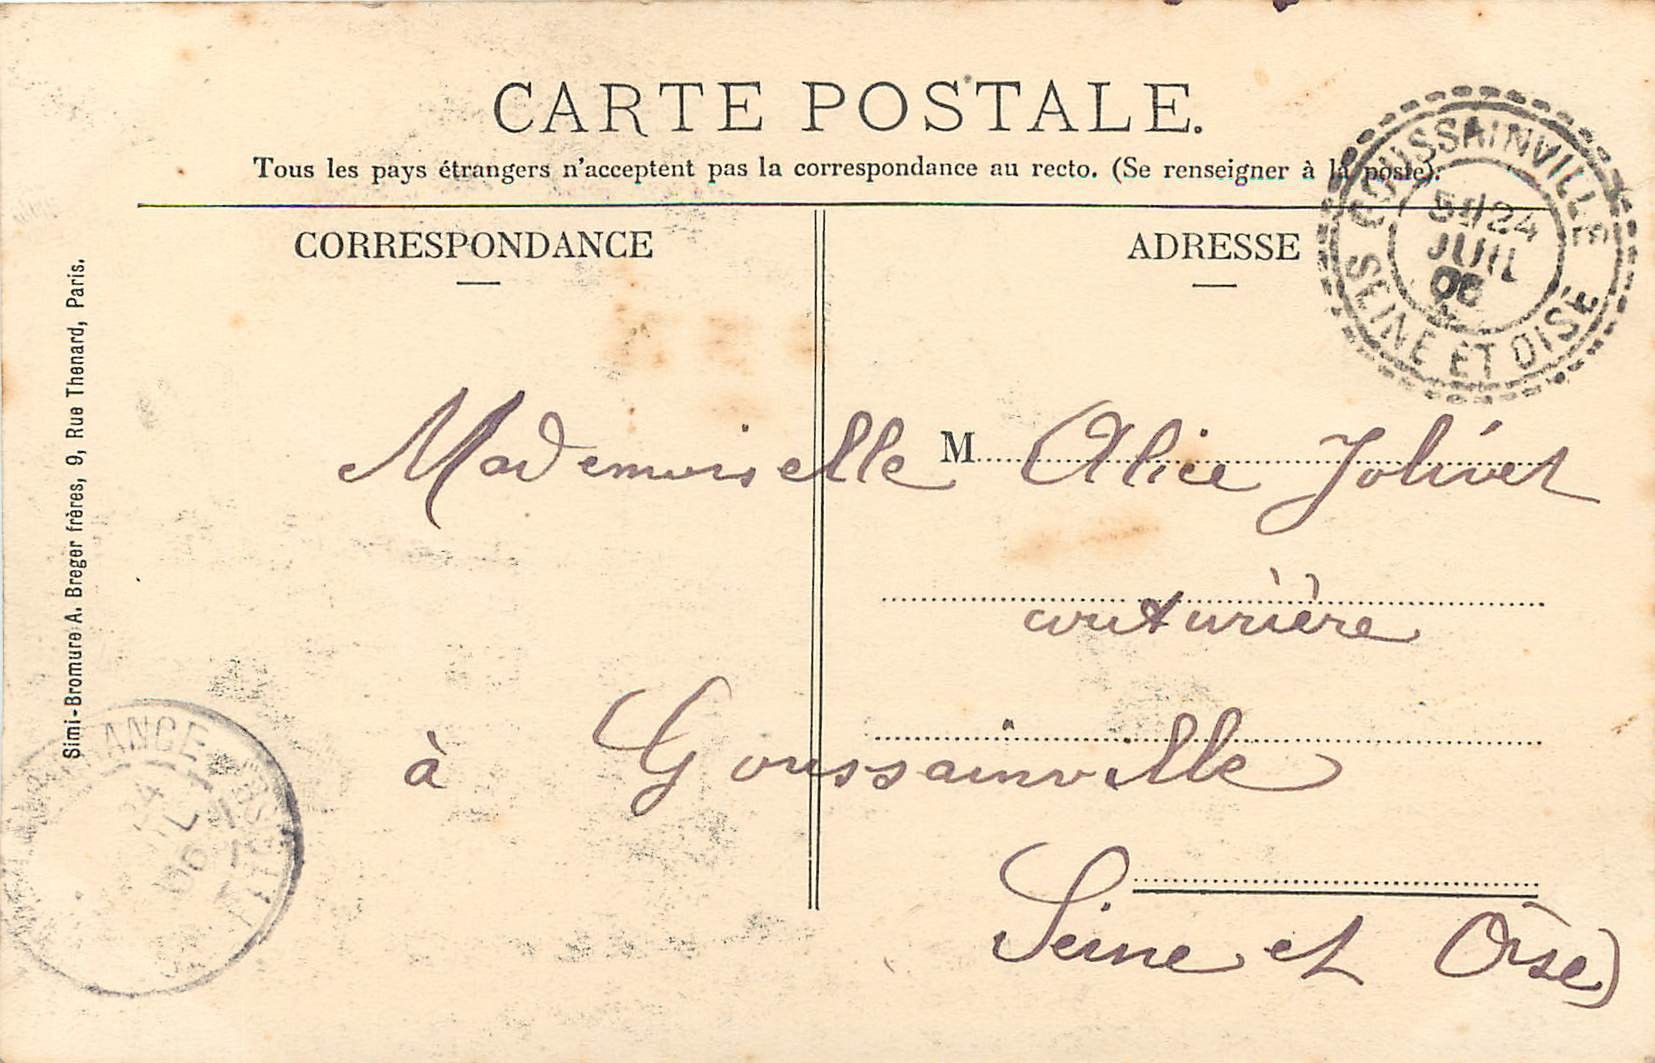 CARTE POSTALE.
Tous les pays étrangers n'acceptent pas la correspondance au recto. (Se renseigner à la poste).
CORRESPONDANCE
ADRESSE
GOUSSAINVILLE
24
JUIL
06
SEINE ET OISE
Simi-Bromure A. Breger frères, 9, Rue Thenard, Paris.
Mademoiselle M Alice Jolivet
couturière
à Goussainville
Seine et Oise)
24
06